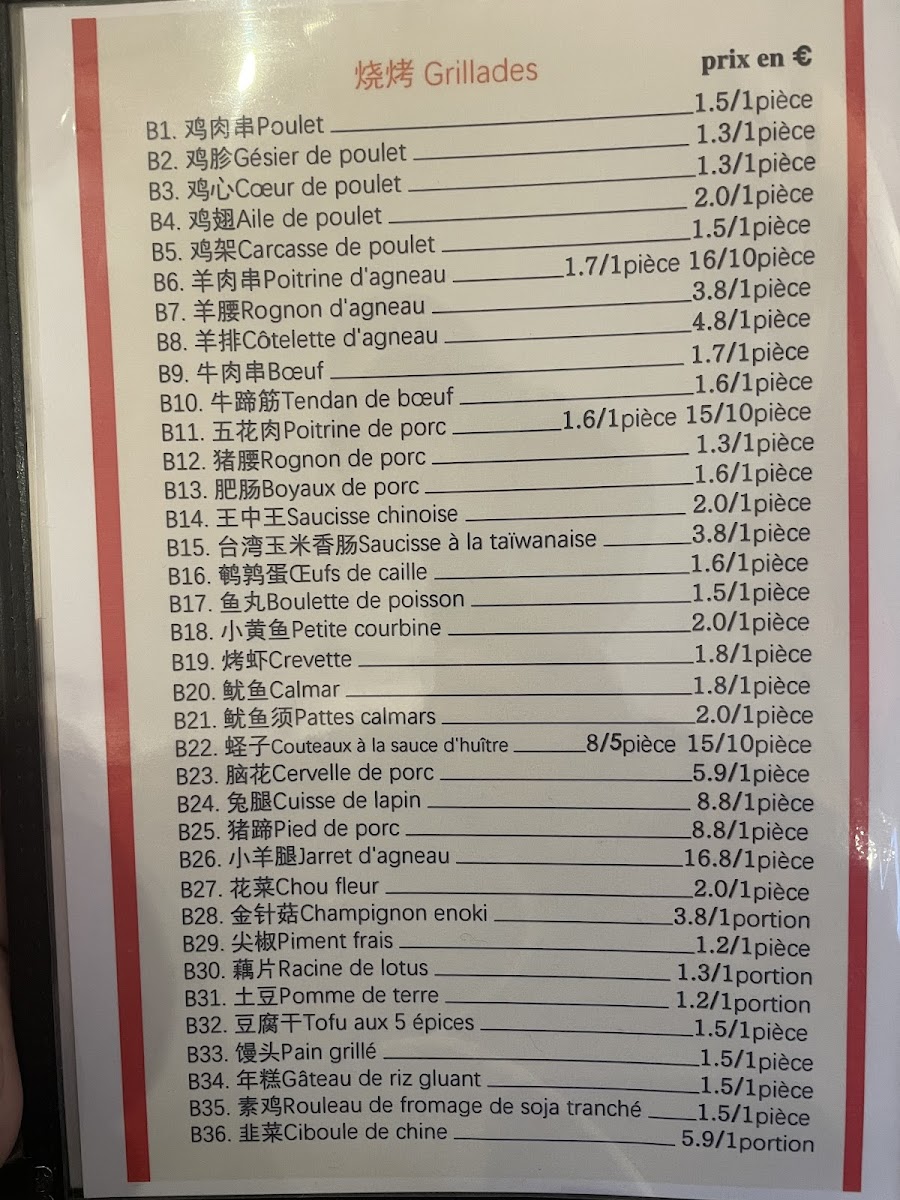 烧烤 Grillades
prix en €
B1. 鸡肉串Poulet 1.5/1pièce
B2. 鸡胗Gésier de poulet 1.3/1pièce
B3. 鸡心Cœur de poulet 1.3/1pièce
B4. 鸡翅Aile de poulet 2.0/1pièce
B5. 鸡架Carcasse de poulet 1.5/1pièce
B6. 羊肉串Poitrine d'agneau 1.7/1pièce 16/10pièce
B7. 羊腰Rognon d'agneau 3.8/1pièce
B8. 羊排Côtelette d'agneau 4.8/1pièce
B9. 牛肉串Bœuf 1.7/1pièce
B10. 牛蹄筋Tendan de bœuf 1.6/1pièce
B11. 五花肉Poitrine de porc 1.6/1pièce 15/10pièce
B12. 猪腰Rognon de porc 1.3/1pièce
B13. 肥肠Boyaux de porc 1.6/1pièce
B14. 王中王Saucisse chinoise 2.0/1pièce
B15. 台湾玉米香肠Saucisse à la taïwanaise 3.8/1pièce
B16. 鹌鹑蛋Œufs de caille 1.6/1pièce
B17. 鱼丸Boulette de poisson 1.5/1pièce
B18. 小黄鱼Petite courbine 2.0/1pièce
B19. 烤虾Crevette 1.8/1pièce
B20. 鱿鱼Calmar 1.8/1pièce
B21. 鱿鱼须Pattes calmars 2.0/1pièce
B22. 蛏子Couteaux à la sauce d'huître 8/5pièce 15/10pièce
B23. 脑花Cervelle de porc 5.9/1pièce
B24. 兔腿Cuisse de lapin 8.8/1pièce
B25. 猪蹄Pied de porc 8.8/1pièce
B26. 小羊腿Jarret d'agneau 16.8/1pièce
B27. 花菜Chou fleur 2.0/1pièce
B28. 金针菇Champignon enoki 3.8/1portion
B29. 尖椒Piment frais 1.2/1pièce
B30. 藕片Racine de lotus 1.3/1portion
B31. 土豆Pomme de terre 1.2/1portion
B32. 豆腐干Tofu aux 5 épices 1.5/1pièce
B33. 馒头Pain grillé 1.5/1pièce
B34. 年糕Gâteau de riz gluant 1.5/1pièce
B35. 素鸡Rouleau de fromage de soja tranché 1.5/1pièce
B36. 韭菜Ciboule de chine 5.9/1portion